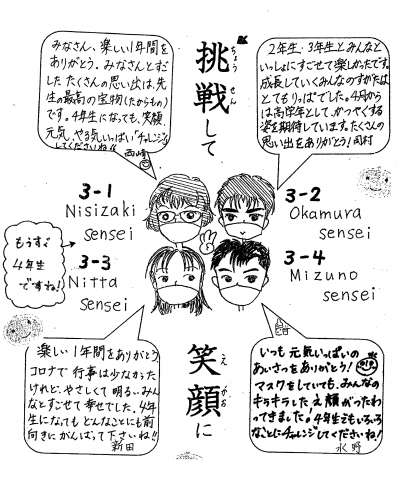 みなさん、楽しい1年間を
ありがとう。みなさんとすご
した たくさんの思い出は、先
生の最高の宝物(たからもの)
です。4年生になっても、笑顔
元気、やる気いっぱい「チャレンジ」
してくださいね!!
西崎
挑戦して
ちょうせん
2年生・3年生とみんなと
いっしょにすごせて楽しかったです。
成長していくみんなのすがたは
とてもりっぱでした。4月から
は高学年として、かつやくする
姿を期待しています。たくさんの
思い出をありがとう!岡村
3-1
Nisizaki
sensei
3-2
Okamura
sensei
もうすぐ
4年生
ですね!
3-3
Nitta
sensei
3-4
Mizuno
sensei
楽しい1年間をありがとう
コロナで行事は少なかった
けれど、やさしくて明るいみん
なとすごせて幸せでした。4年
生になってもどんなことにも前
向きにがんばって下さいね!!
新田
笑顔に
えがお
いつも元気いっぱいの
あいさつをありがとう!
マスクをしていても、みんなの
キラキラした え顔がつたわ
ってきました!4年生でもいろいろ
なことにチャレンジしてくださいね!
水野